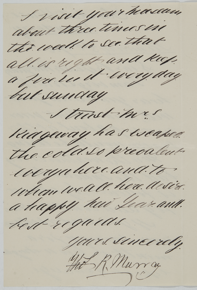 I visit your house
about three times in
the week to see that
all is right and keep
a journal every day
but Sunday
I trust Mrs
Ridgeway has escaped
the colds so prevalent
everywhere and to
whom we all desire
a happy New Year and
best regards
Yours sincerely
R. Murray